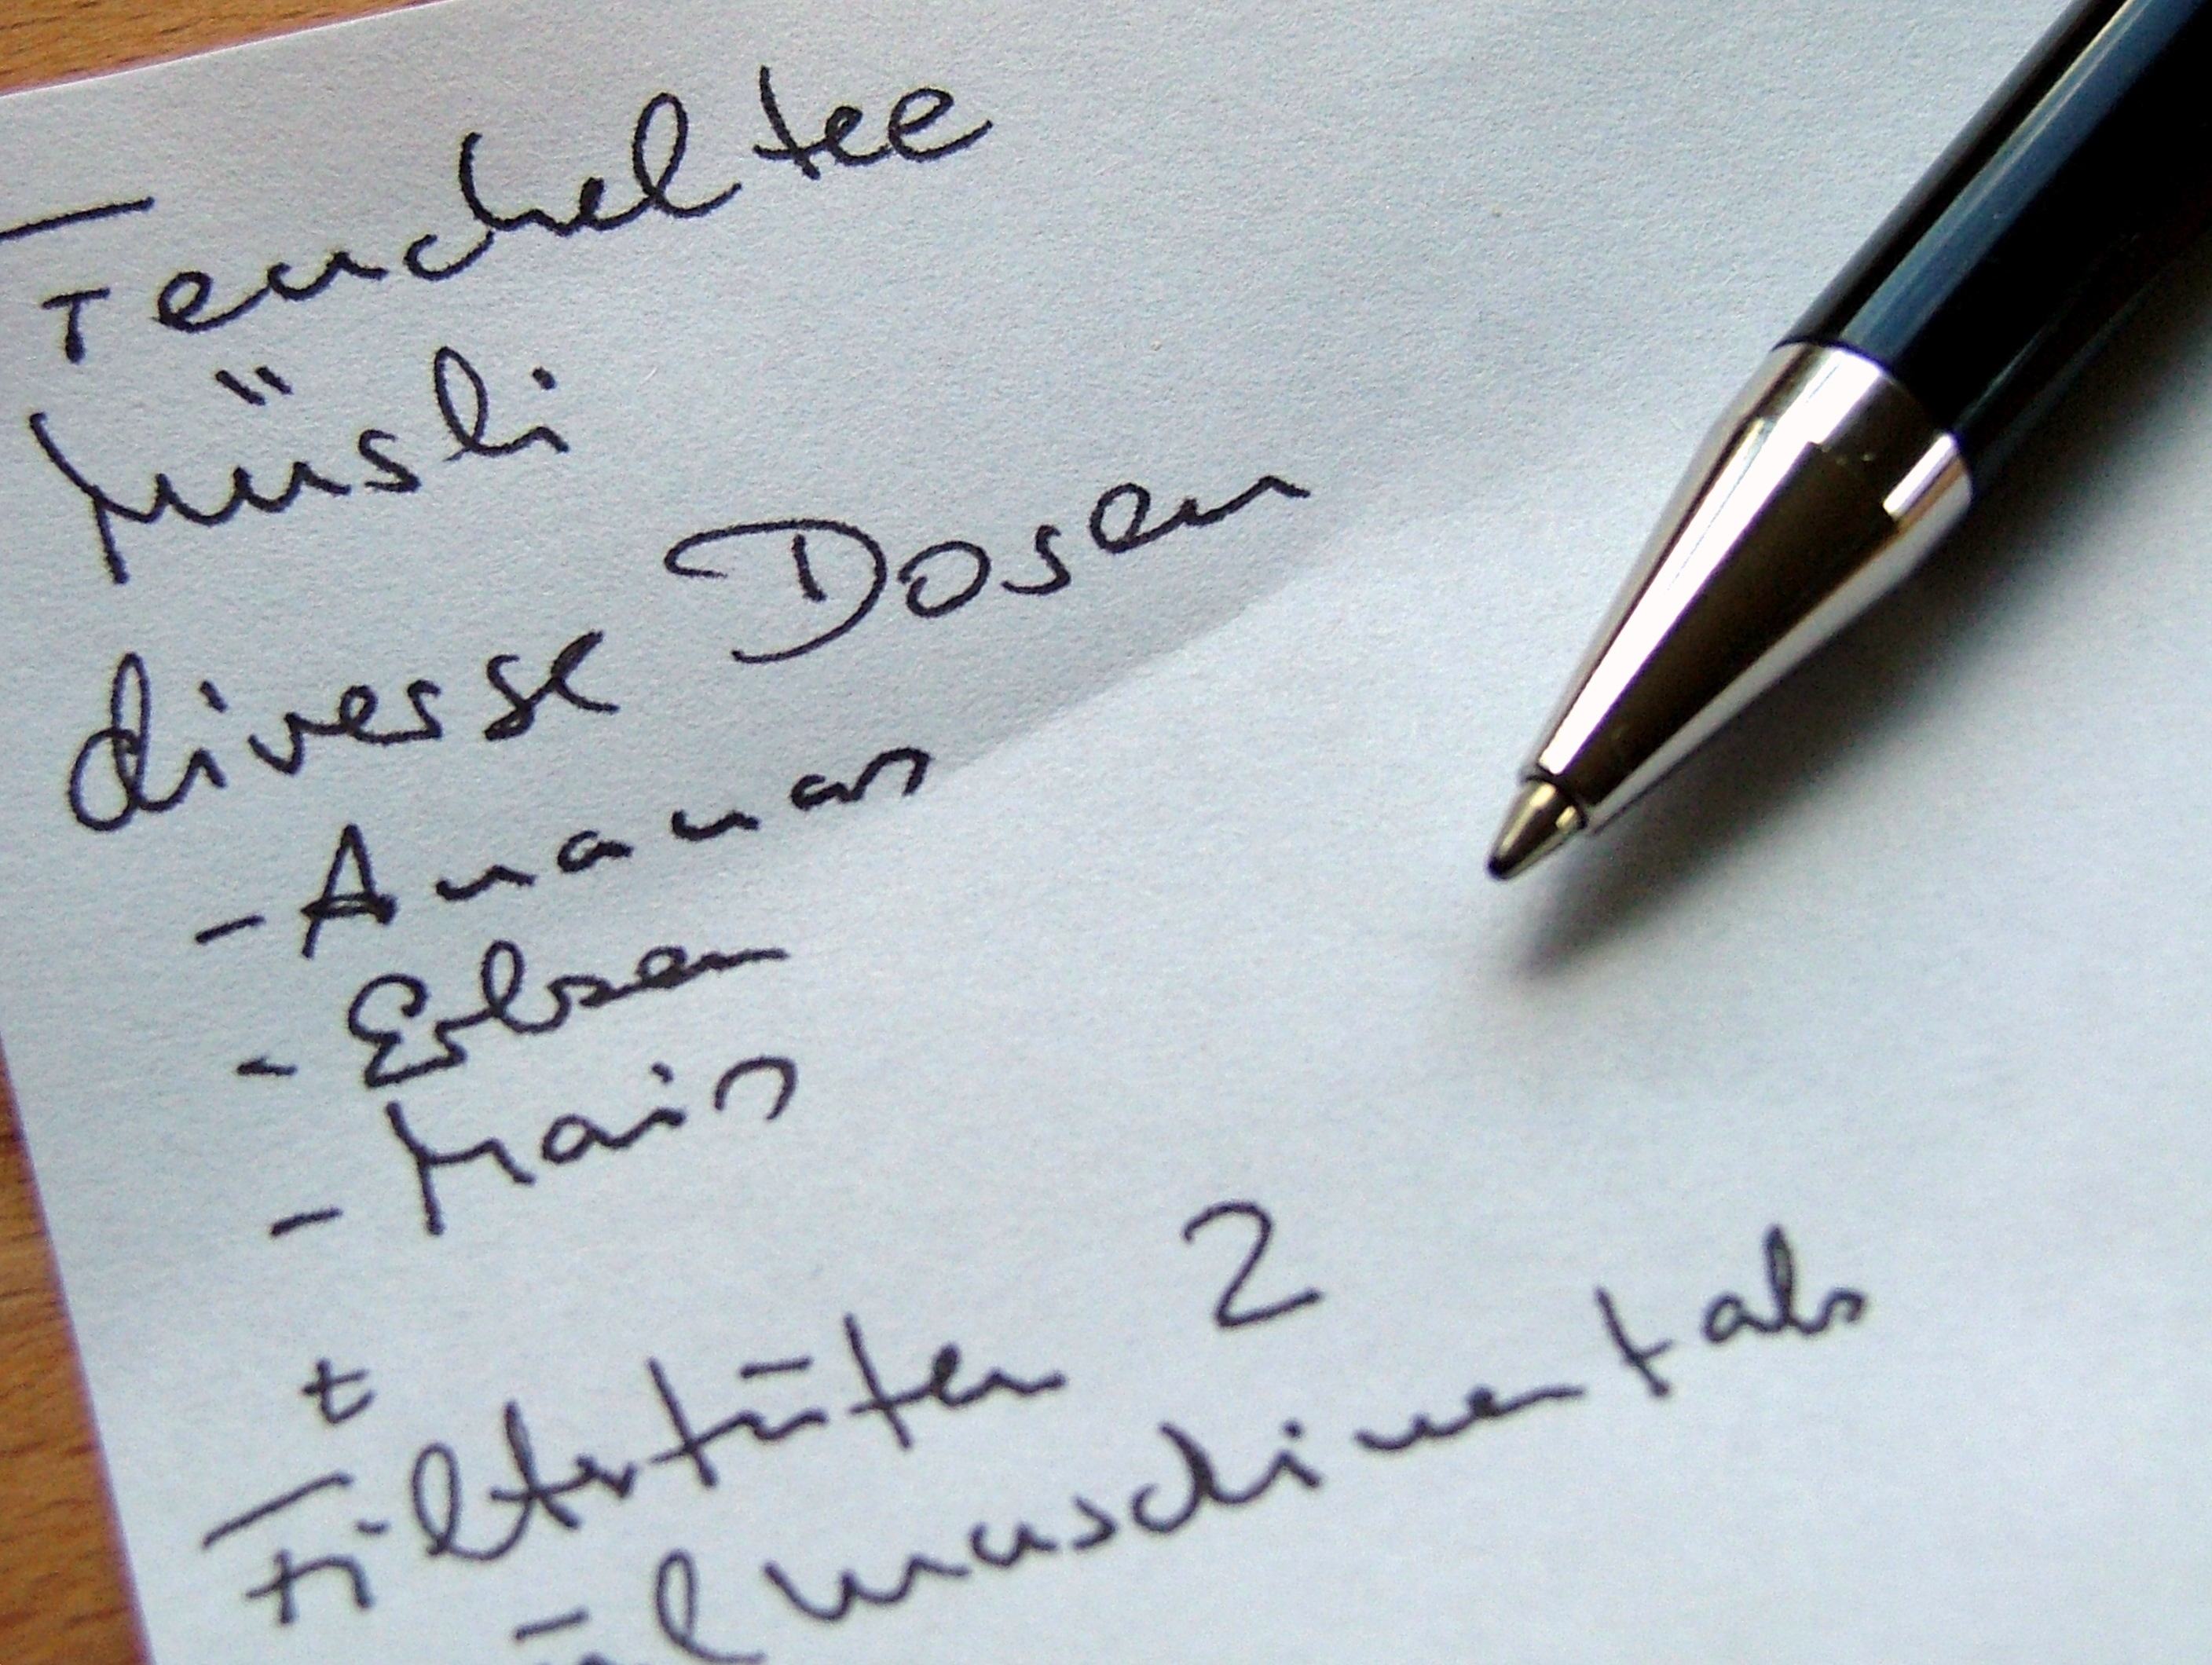 Fencheltee
Müsli
diverse Dosen
- Ananas
- Erbsen
- Mais
Filtertüten 2
ülmaschinentabs